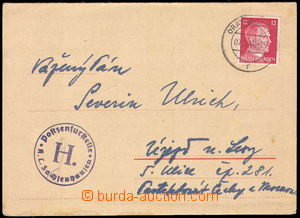 Vážený Pán
Severin Ulrich,
Újezd u
5. Ulice čp. 281.
Protektorát Čechy a Morava
Postzensurstelle
H.
K. L. Sachsenhausen
12
DEUTSCHES REICH
burda-auction.com